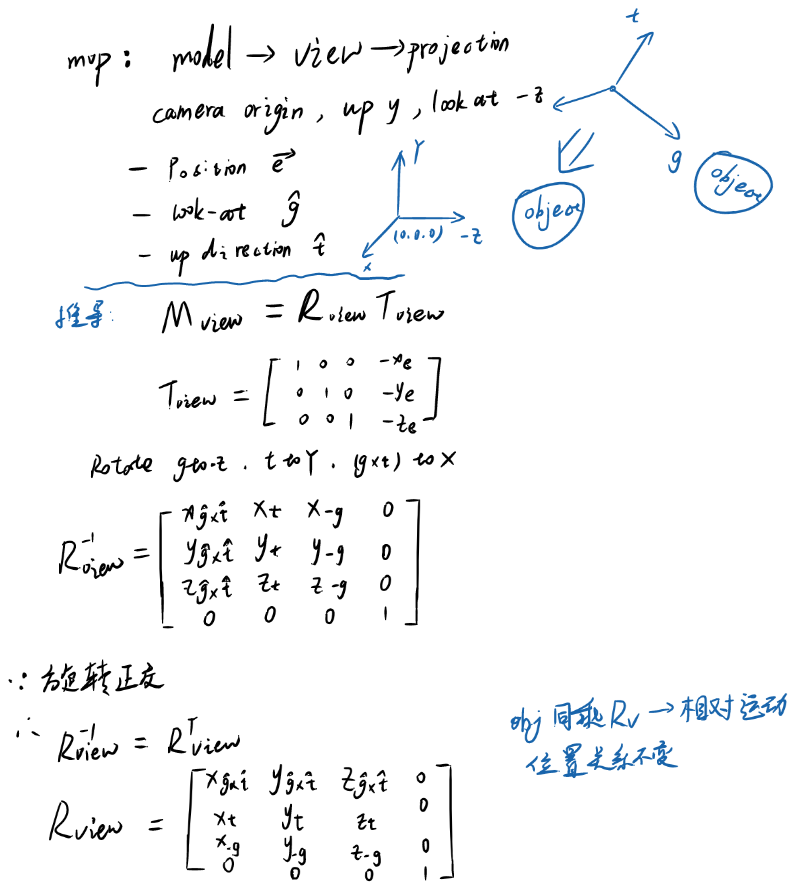 mvp: model → view → projection
camera origin, up y, look at -z
- Position e⃗
- look-at ĝ
- up direction t̂
Y
(0.0.0) -z
x
t
g
object
object
推导:
M view = R view T view
T view = [ 1 0 0 -xe
0 1 0 -ye
0 0 1 -ze ]
Rotate g to -z, t to Y, (g×t) to X
R⁻¹view = [ xĝ×t̂ xt x-g 0
yĝ×t̂ yt y-g 0
zĝ×t̂ zt z-g 0
0 0 0 1 ]
∵ 旋转正交
∴ R⁻¹view = Rᵀview
Rview = [ xĝ×t̂ yĝ×t̂ zĝ×t̂ 0
xt yt zt 0
x-g y-g z-g 0
0 0 0 1 ]
obj 同乘 Rv → 相对运动
位置关系不变